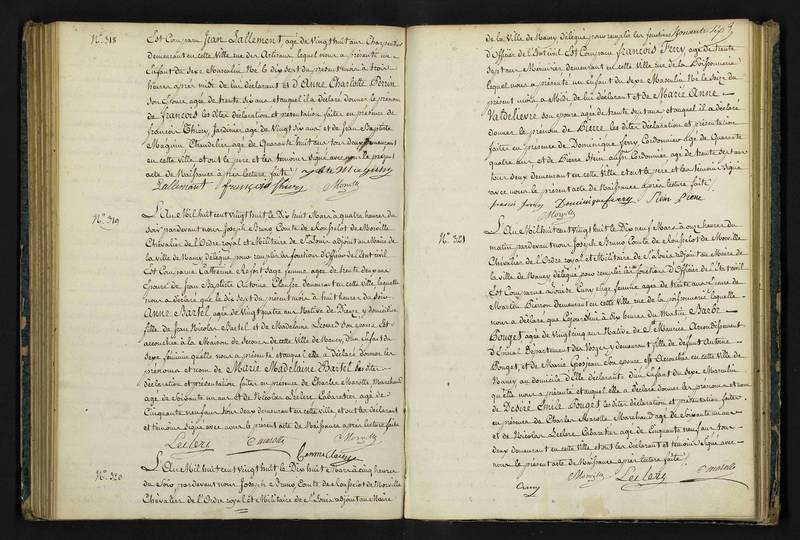 N.° 318
Est Comparu Jean Lallemont, agé de Vingt huit ans Charpentier
demeurant en cette Ville rue des Artisans lequel nous a présenté un
Enfant du Sexe Masculin Né le dix sept du présent mois à trois
heures après midi de lui déclarant et D'Anne Charlotte Perrin
Son Epouse agée de trente six ans et auquel il a déclaré donner le prénom
de François les dites déclaration et présentation faites en présence de
François Thiery, Jardinier agé de Vingt six ans et de Jean Baptiste
Chaudelier, agé de Quarante huit ans tous deux demeurant
en cette Ville et ont le père et les témoins Signé avec nous le présent
acte de Naissance après lecture faite
Lallemont françois thiery Morville
N.° 319
L'An Mil huit cent Vingt huit le Dix huit Mars à quatre heures du
Soir pardevant nous Joseph Bruno Comte de de Morville
Chevalier de l'Ordre royal et Militaire de St Louis adjoint au Maire de
la Ville de Nancy délégué pour remplir les fonctions d'Officier de l'Etat civil
Est Comparue Catherine Sage femme, agée de trente deux ans
Epouse de Jean Baptiste Antoine demeurant en cette Ville, laquelle
nous a déclaré que le Dix sept du présent mois à huit heures du Soir
Anne Bartel agée de Vingt quatre ans Native de Dieuze y domiciliée
fille de Jean Nicolas Bartel et de Madelaine Son épouse Est
accouchée à la Maison de Secours de cette Ville de Nancy, D'un Enfant du
Sexe féminin qu'elle nous a présenté et auquel elle a déclaré donner les
prénoms et nom de Marie Madelaine Bartel les dites
déclaration et présentation faites en présence de Charles Marotte Marchand
agé de Soixante un ans et de Nicolas Leclerc Cabaretier agé de
Cinquante neuf ans tous deux demeurant en cette Ville et ont les déclarant
et témoins Signé avec nous le présent acte de Naissance après lecture faite
Leclerc C marotte Morville
N.° 320
L'An Mil huit cent Vingt huit le Dix huit Mars à cinq heures
du Soir pardevant nous Joseph Bruno Comte de de Morville
Chevalier de l'Ordre royal et Militaire de St Louis adjoint au Maire
de la Ville de Nancy délégué pour remplir les fonctions
d'Officier de l'Etat civil Est Comparu François Ferry agé de trente
Sept ans Menuisier demeurant en cette Ville rue de la Poissonnerie
lequel nous a présenté un Enfant du Sexe Masculin Né le Seize du
présent mois à Midi de lui déclarant et de Marie Anne
Valdelievre Son épouse agée de trente sept ans et auquel il a déclaré
donner le prénom de Pierre les dites déclaration et présentation
faites en présence de Dominique Ferry Cordonnier agé de Quarante
quatre ans et de Pierre Stein aussi Cordonnier agé de trente sept ans
tous deux demeurant en cette Ville et ont le père et les témoins Signé
avec nous le présent acte de Naissance après lecture faite
françois ferry Dominique ferry Stein Piere
Morville
N.° 321
L'An Mil huit cent Vingt huit le Dix neuf Mars à onze heures du
matin pardevant nous Joseph Bruno Comte de de Morville
Chevalier de l'Ordre royal et Militaire de St Louis adjoint au Maire de
la Ville de Nancy délégué pour remplir les fonctions d'Officier de l'Etat civil
Est Comparue Louise Sage femme agée de trente ans Veuve de
Martin Pierron demeurant en cette Ville rue de la poissonnerie laquelle
nous a déclaré que Cejourd'hui à Dix heures du Matin Barbe
Pouget agée de Vingt cinq ans Native de St Maurice Arrondissement
d'Epinal Département des Vosges y demeurant fille de défunt Antoine
Pouget, et de Marie Son épouse Est Accouchée en cette Ville de
Nancy au domicile d'Elle déclarante d'un Enfant du Sexe Masculin
qu'elle nous a présenté et auquel elle a déclaré donner les prénoms et nom
de Désiré Emile Pouget les dites déclaration et présentation faites
en présence de Charles Marotte Marchand agé de Soixante un ans
et de Nicolas Leclerc Cabaretier agé de Cinquante neuf ans tous
deux demeurant en cette Ville et ont les déclarant et témoins Signé avec
nous le présent acte de Naissance après lecture faite
Morville Leclerc C marotte